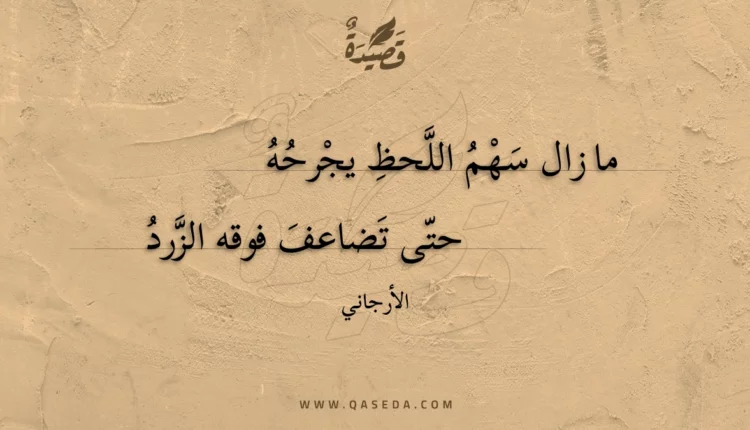 قَصِيْدَةٌ
ما زال سَهْمُ اللَّحظِ يجْرحُهُ
حتّى تَضاعفَ فوقه الزَّردُ
الأرجاني
WWW.QASEDA.COM